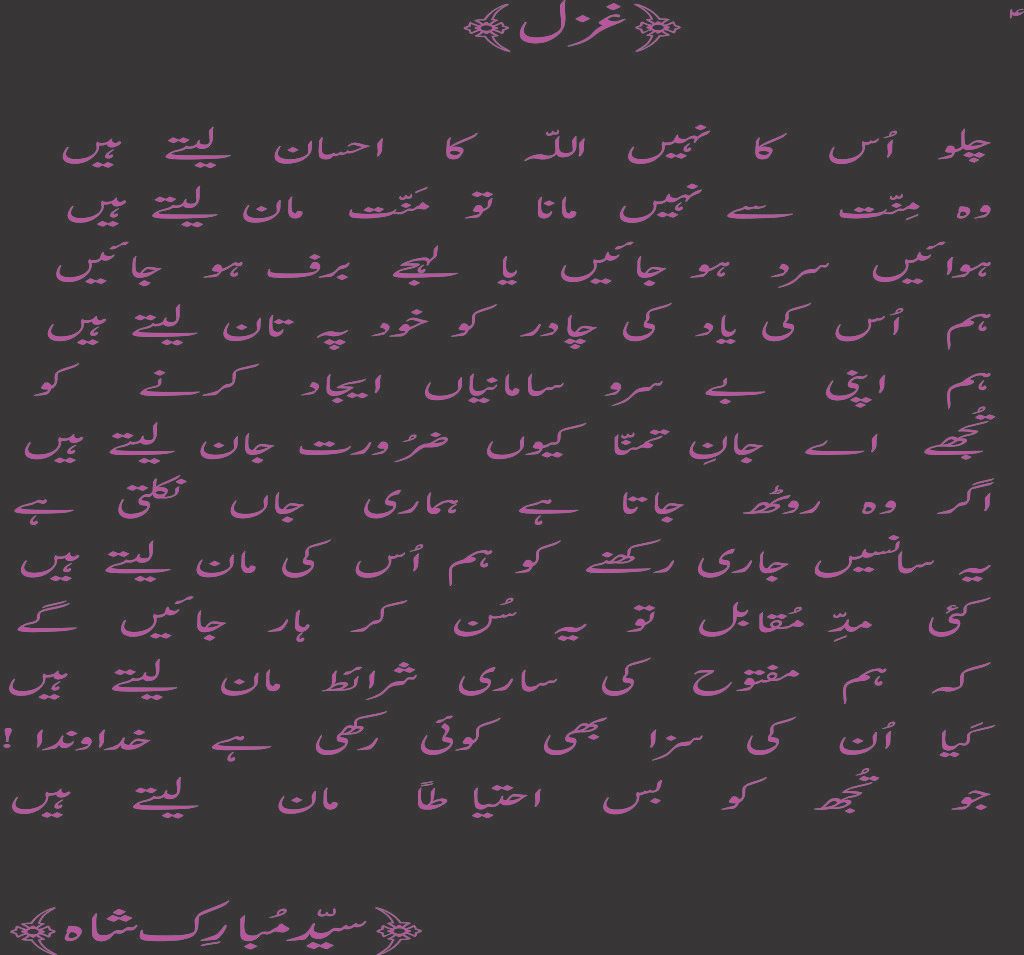 ۴
﴿غزل﴾
چلو اُس کا نہیں اللّہ کا احسان لیتے ہیں
وہ مِنّت سے نہیں مانا تو مَنّت مان لیتے ہیں
ہوائیں سرد ہو جائیں یا لہجے برف ہو جائیں
ہم اُس کی یاد کی چادر کو خود پہ تان لیتے ہیں
ہم اپنی بے سرو سامانیاں ایجاد کرنے کو
تُجھے اے جانِ تمنّا کیوں ضرُورت جان لیتے ہیں
اگر وہ روٹھ جاتا ہے ہماری جاں نکلتی ہے
یہ سانسیں جاری رکھنے کو ہم اُس کی مان لیتے ہیں
کئی مدِّ مُقابل تو یہ سُن کر ہار جائیں گے
کہ ہم مفتوح کی ساری شرائط مان لیتے ہیں
کَیا اُن کی سزا بھی کوئی رکھی ہے خداوندا!
جو تُجھ کو بس احتیاطاً مان لیتے ہیں
﴿سیّد مُبارِک شاہ﴾